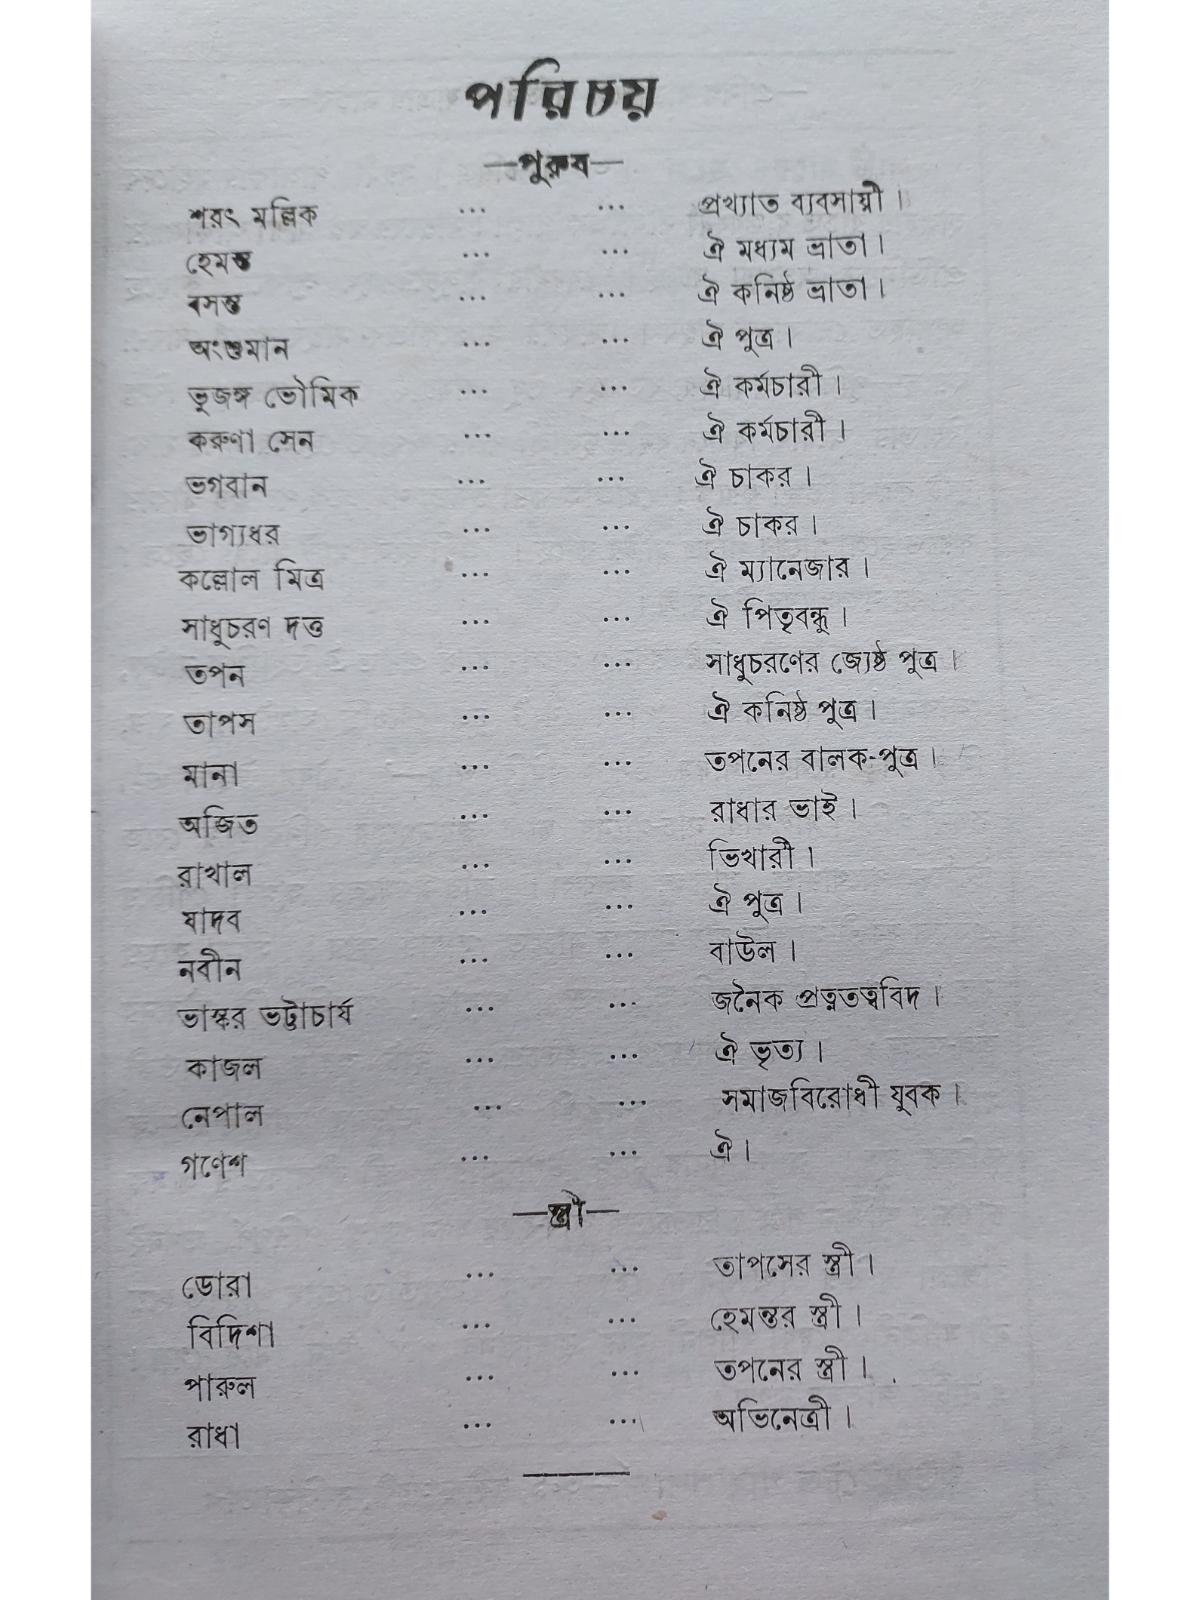 পরিচয়
—পুরুষ—
শরৎ মল্লিক ... ... প্রখ্যাত ব্যবসায়ী ।
হেমন্ত ... ... ঐ মধ্যম ভ্রাতা ।
বসন্ত ... ... ঐ কনিষ্ঠ ভ্রাতা ।
অংশুমান ... ... ঐ পুত্র ।
ভুজঙ্গ ভৌমিক ... ... ঐ কর্মচারী ।
করুণা সেন ... ... ঐ কর্মচারী ।
ভগবান ... ... ঐ চাকর ।
ভাগ্যধর ... ... ঐ চাকর ।
কল্লোল মিত্র ... ... ঐ ম্যানেজার ।
সাধুচরণ দত্ত ... ... ঐ পিতৃবন্ধু ।
তপন ... ... সাধুচরণের জ্যেষ্ঠ পুত্র ।
তাপস ... ... ঐ কনিষ্ঠ পুত্র ।
মানা ... ... তপনের বালক-পুত্র ।
অজিত ... ... রাধার ভাই ।
রাখাল ... ... ভিখারী ।
যাদব ... ... ঐ পুত্র ।
নবীন ... ... বাউল ।
ভাস্কর ভট্টাচার্য ... ... জনৈক প্রত্নতত্ববিদ ।
কাজল ... ... ঐ ভৃত্য ।
নেপাল ... ... সমাজবিরোধী যুবক ।
গণেশ ... ... ঐ ।
—স্ত্রী—
ডোরা ... ... তাপসের স্ত্রী ।
বিদিশা ... ... হেমন্তর স্ত্রী ।
পারুল ... ... তপনের স্ত্রী ।
রাধা ... ... অভিনেত্রী ।